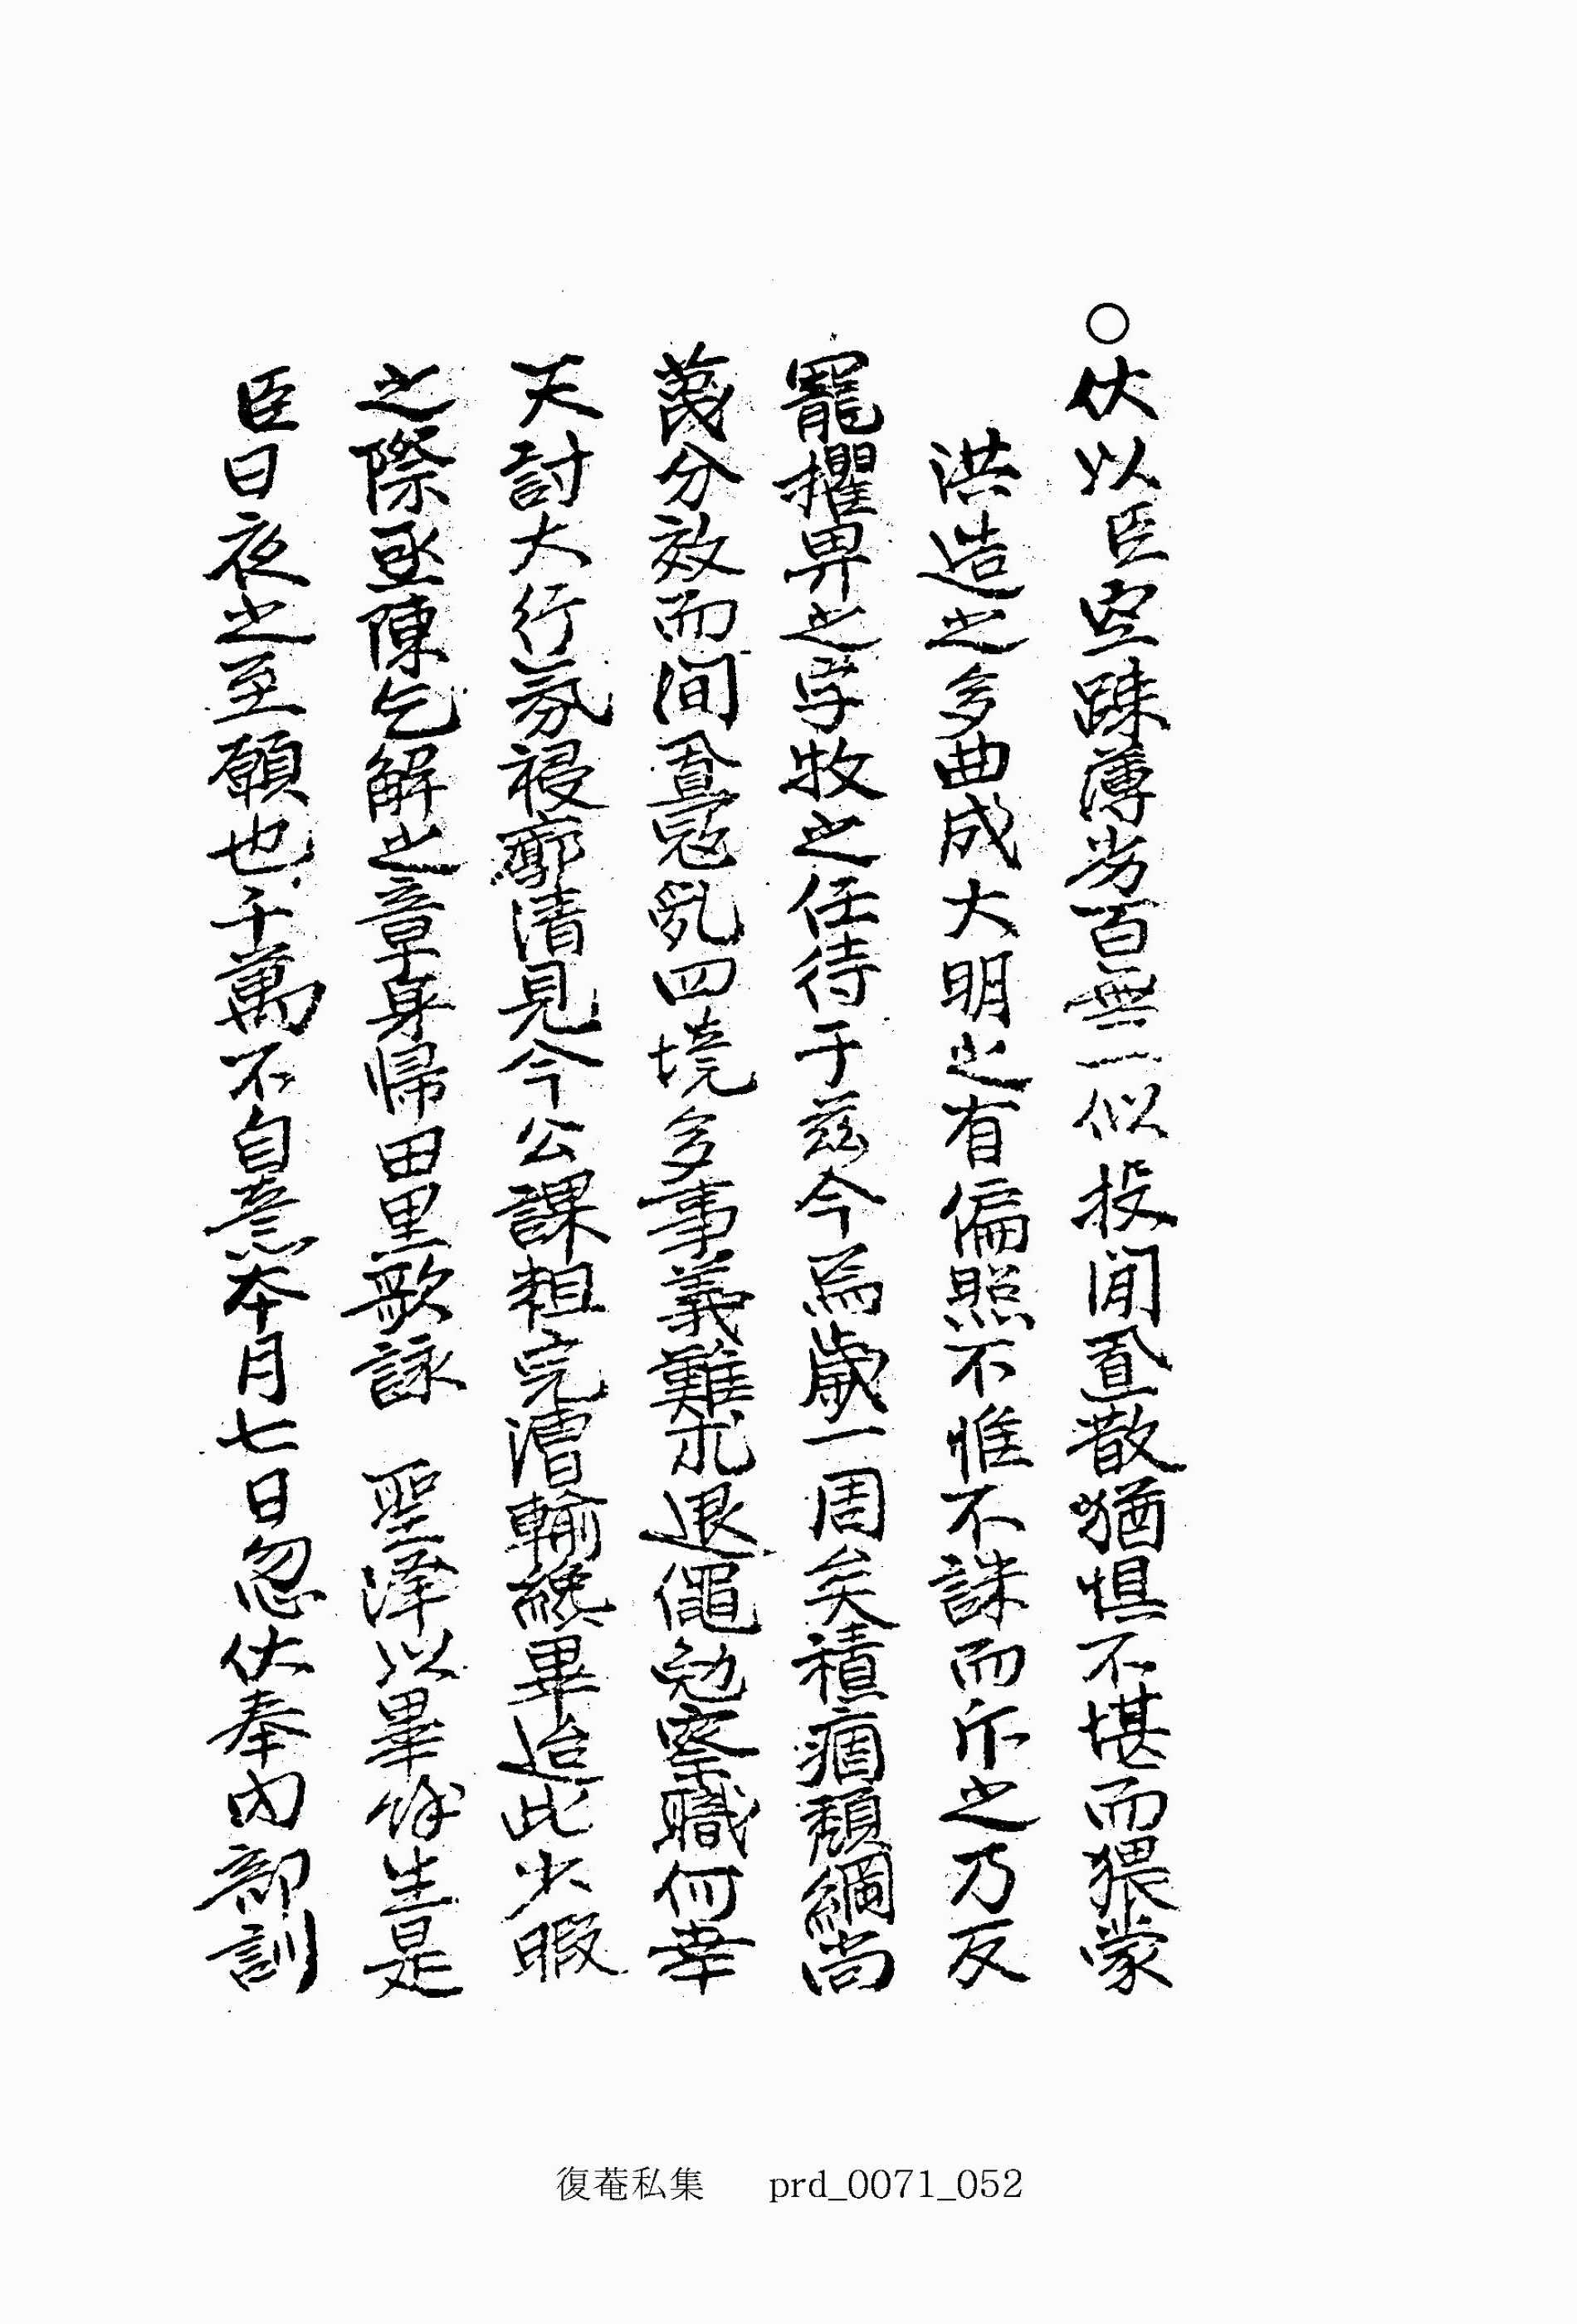 ○伏以臣空踈薄劣百無一似投閒置散猶惧不堪而猥蒙
洪造之多曲成大明之有偏照不惟不誅而斥之乃反
寵擢畀之字牧之任待于玆今焉歲一周矣積痼頹綱尚
蔑分效而間置寇亂四境多事義難求退僶勉察職何幸
天討大行氛祲廓清見今公課粗完漕輸終畢迨此少暇
之際亟陳乞解之章身帰田里歌詠 聖澤以畢餘生是
臣日夜之至願也千萬不自意本月七日忽伏奉內部訓
復菴私集 prd_0071_052